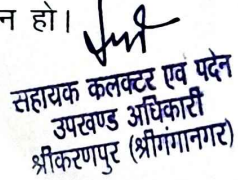 न हो।
सहायक कलक्टर एवं पदेन
उपखण्ड अधिकारी
श्रीकरणपुर (श्रीगंगानगर)